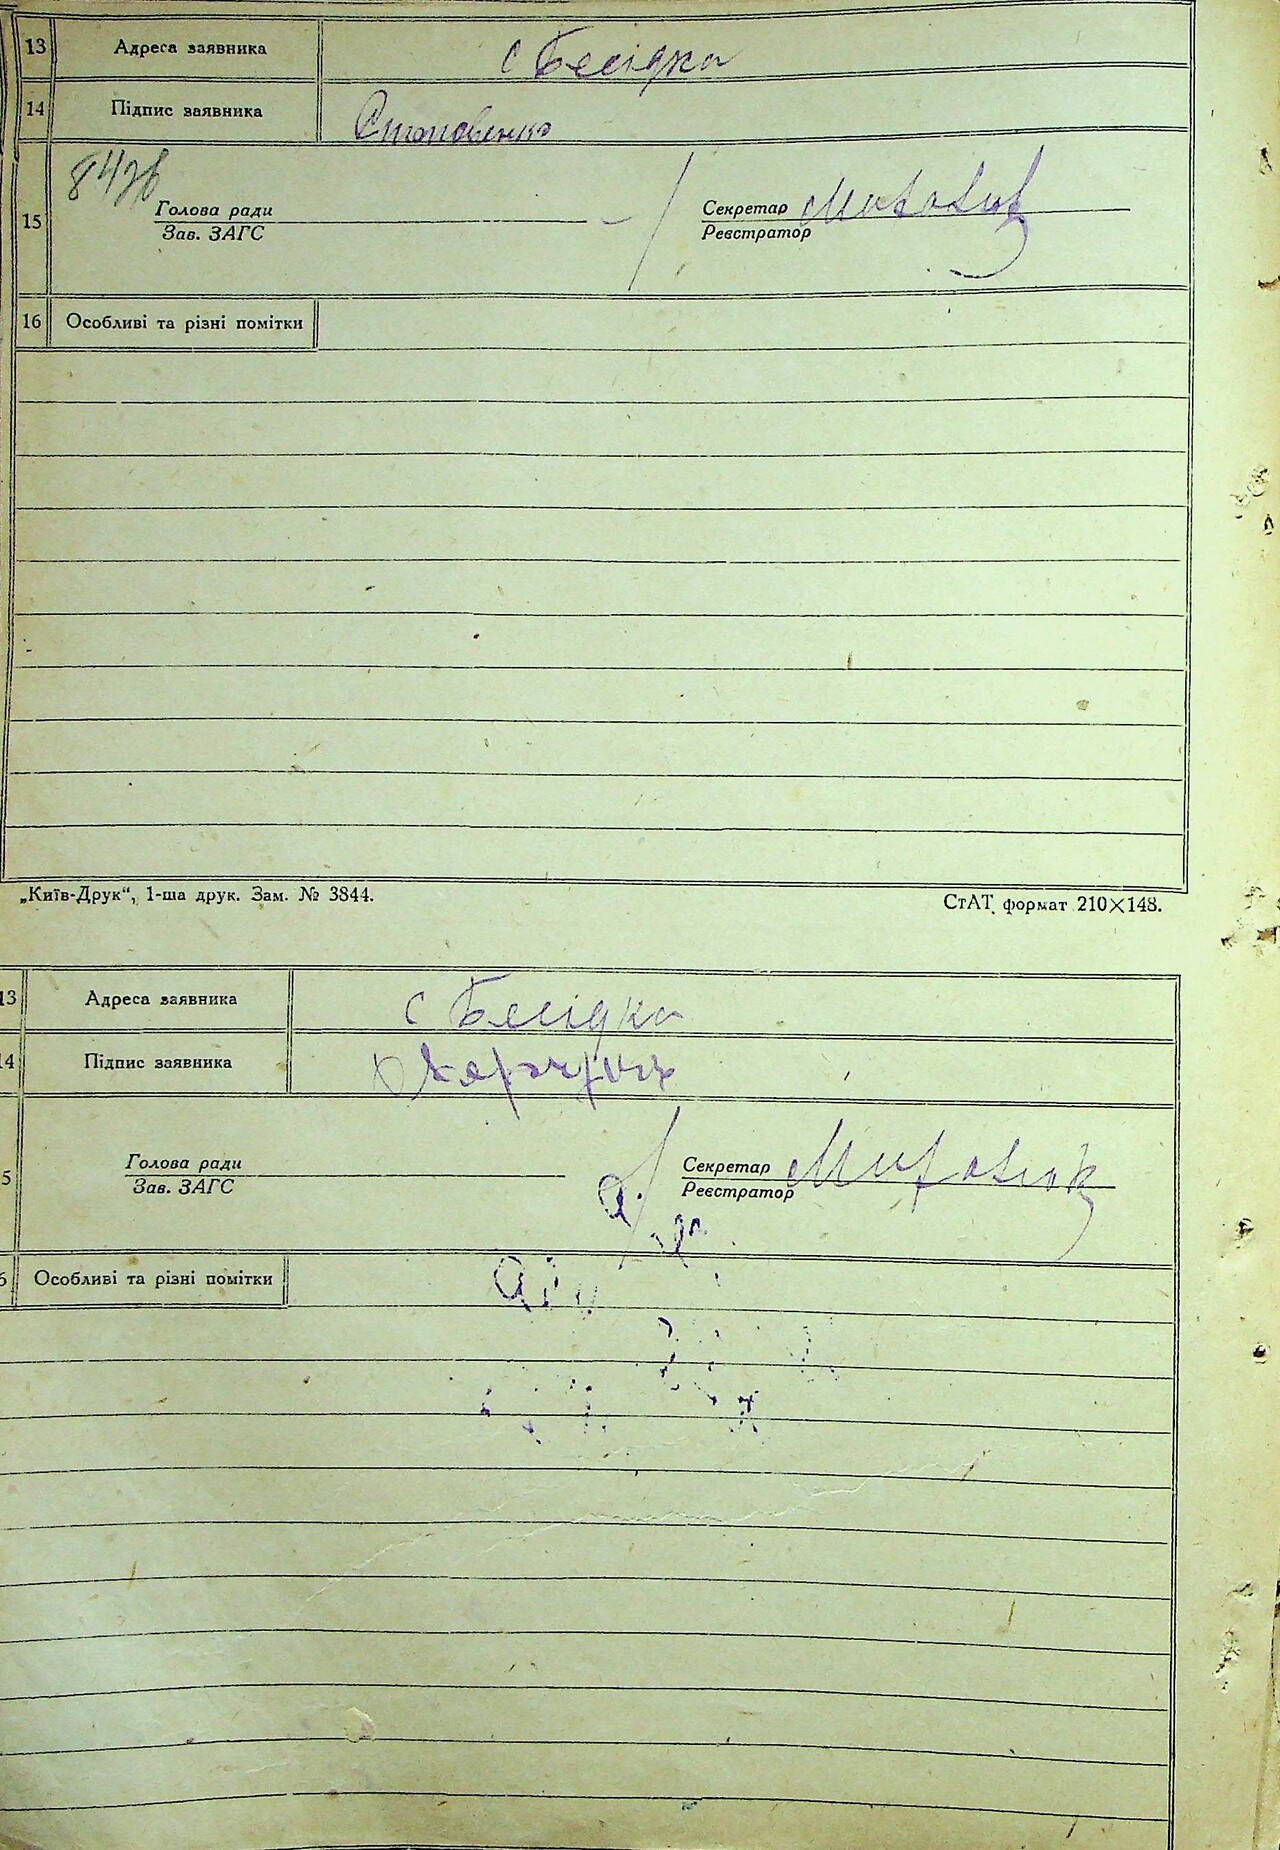 13 Адреса заявника с Бесідка
14 Підпис заявника
15 Голова ради Секретар
Зав. ЗАГС Реєстратор
16 Особливі та різні помітки
„Київ-Друк“, 1-ша друк. Зам. № 3844. СтАТ. формат 210×148.
13 Адреса заявника с Бесідка
14 Підпис заявника
5 Голова ради Секретар
Зав. ЗАГС Реєстратор
6 Особливі та різні помітки